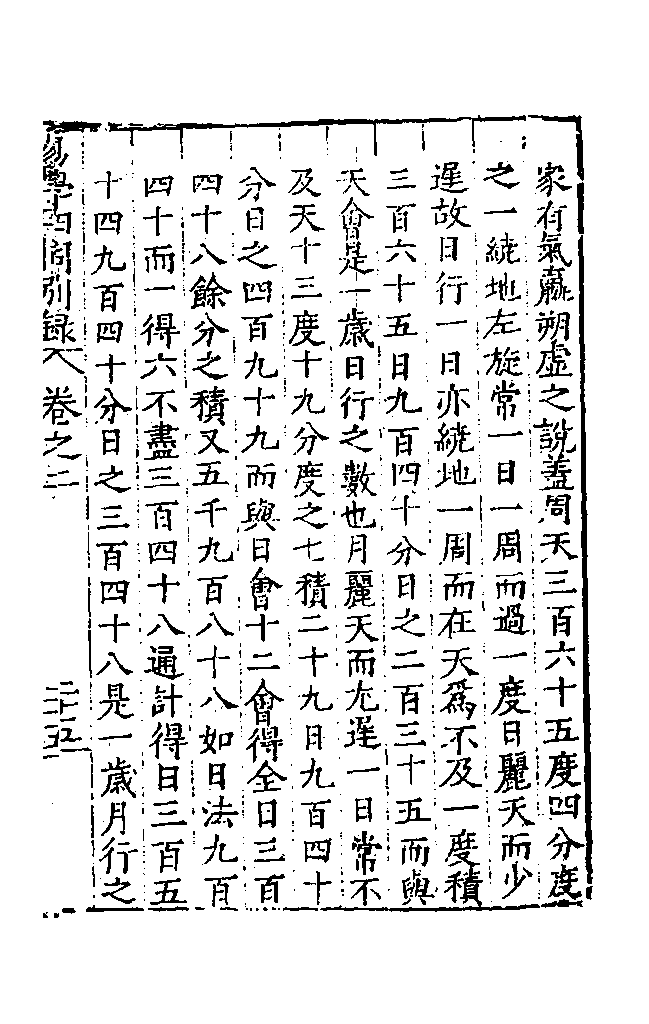 家有氣贏朔虛之說蓋周天三百六十五度四分度
之一繞地左旋常一日一周而過一度日麗天而少
遲故日行一日亦繞地一周而在天為不及一度積
三百六十五日九百四十分日之二百三十五而與
天會是一歲日行之數也月麗天而尤遲一日常不
及天十三度十九分度之七積二十九日九百四十
分日之四百九十九而與日會十二會得全日三百
四十八餘分之積又五千九百八十八如日法九百
四十而一得六不盡三百四十八通計得日三百五
十四九百四十分日之三百四十八是一歲月行之
易學四同別錄 卷之二 二十五